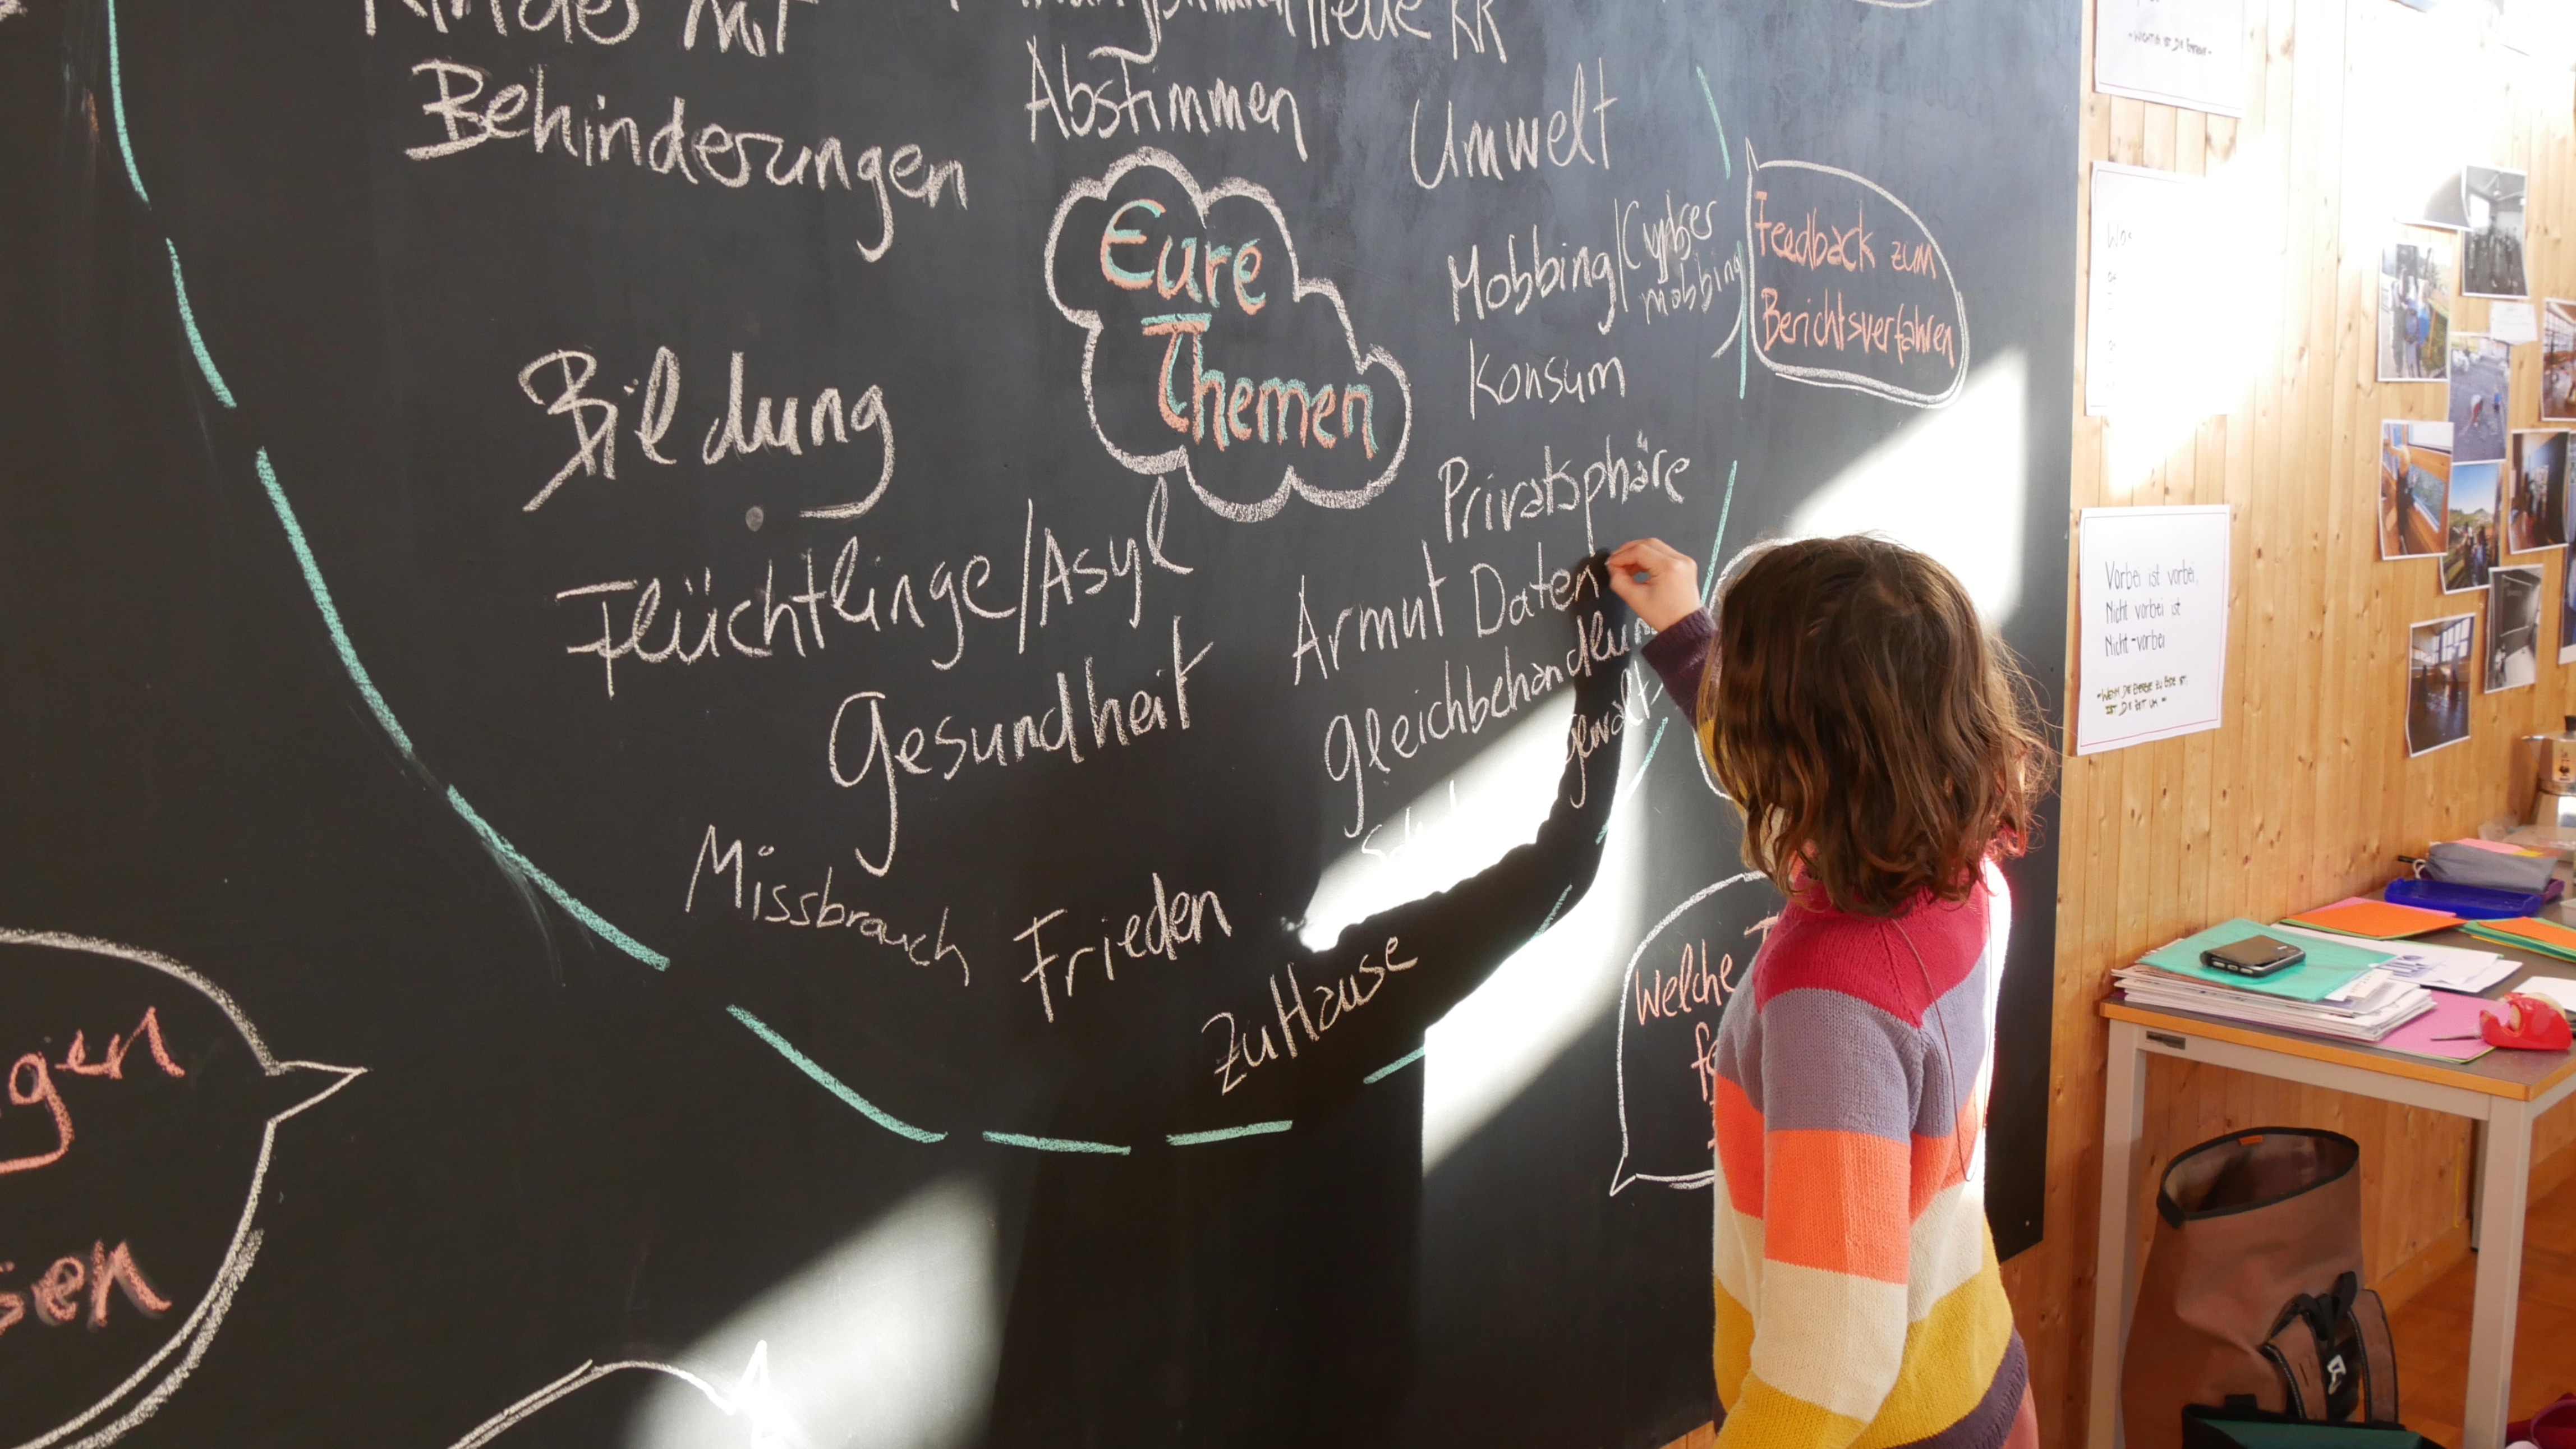 Kinder mit
Behinderungen
Abstimmen
Umwelt
Eure
Themen
Mobbing/Cyber
mobbing
Feedback zum
Berichtsverfahren
Konsum
Bildung
Privatsphäre
Flüchtlinge/Asyl
Armut Daten
Gleichbehandlun
Gesundheit
gewalt
Missbrauch
Frieden
ZuHause
Welche
gen
sen
Vorbei ist vorbei,
Nicht vorbei ist
Nicht-vorbei